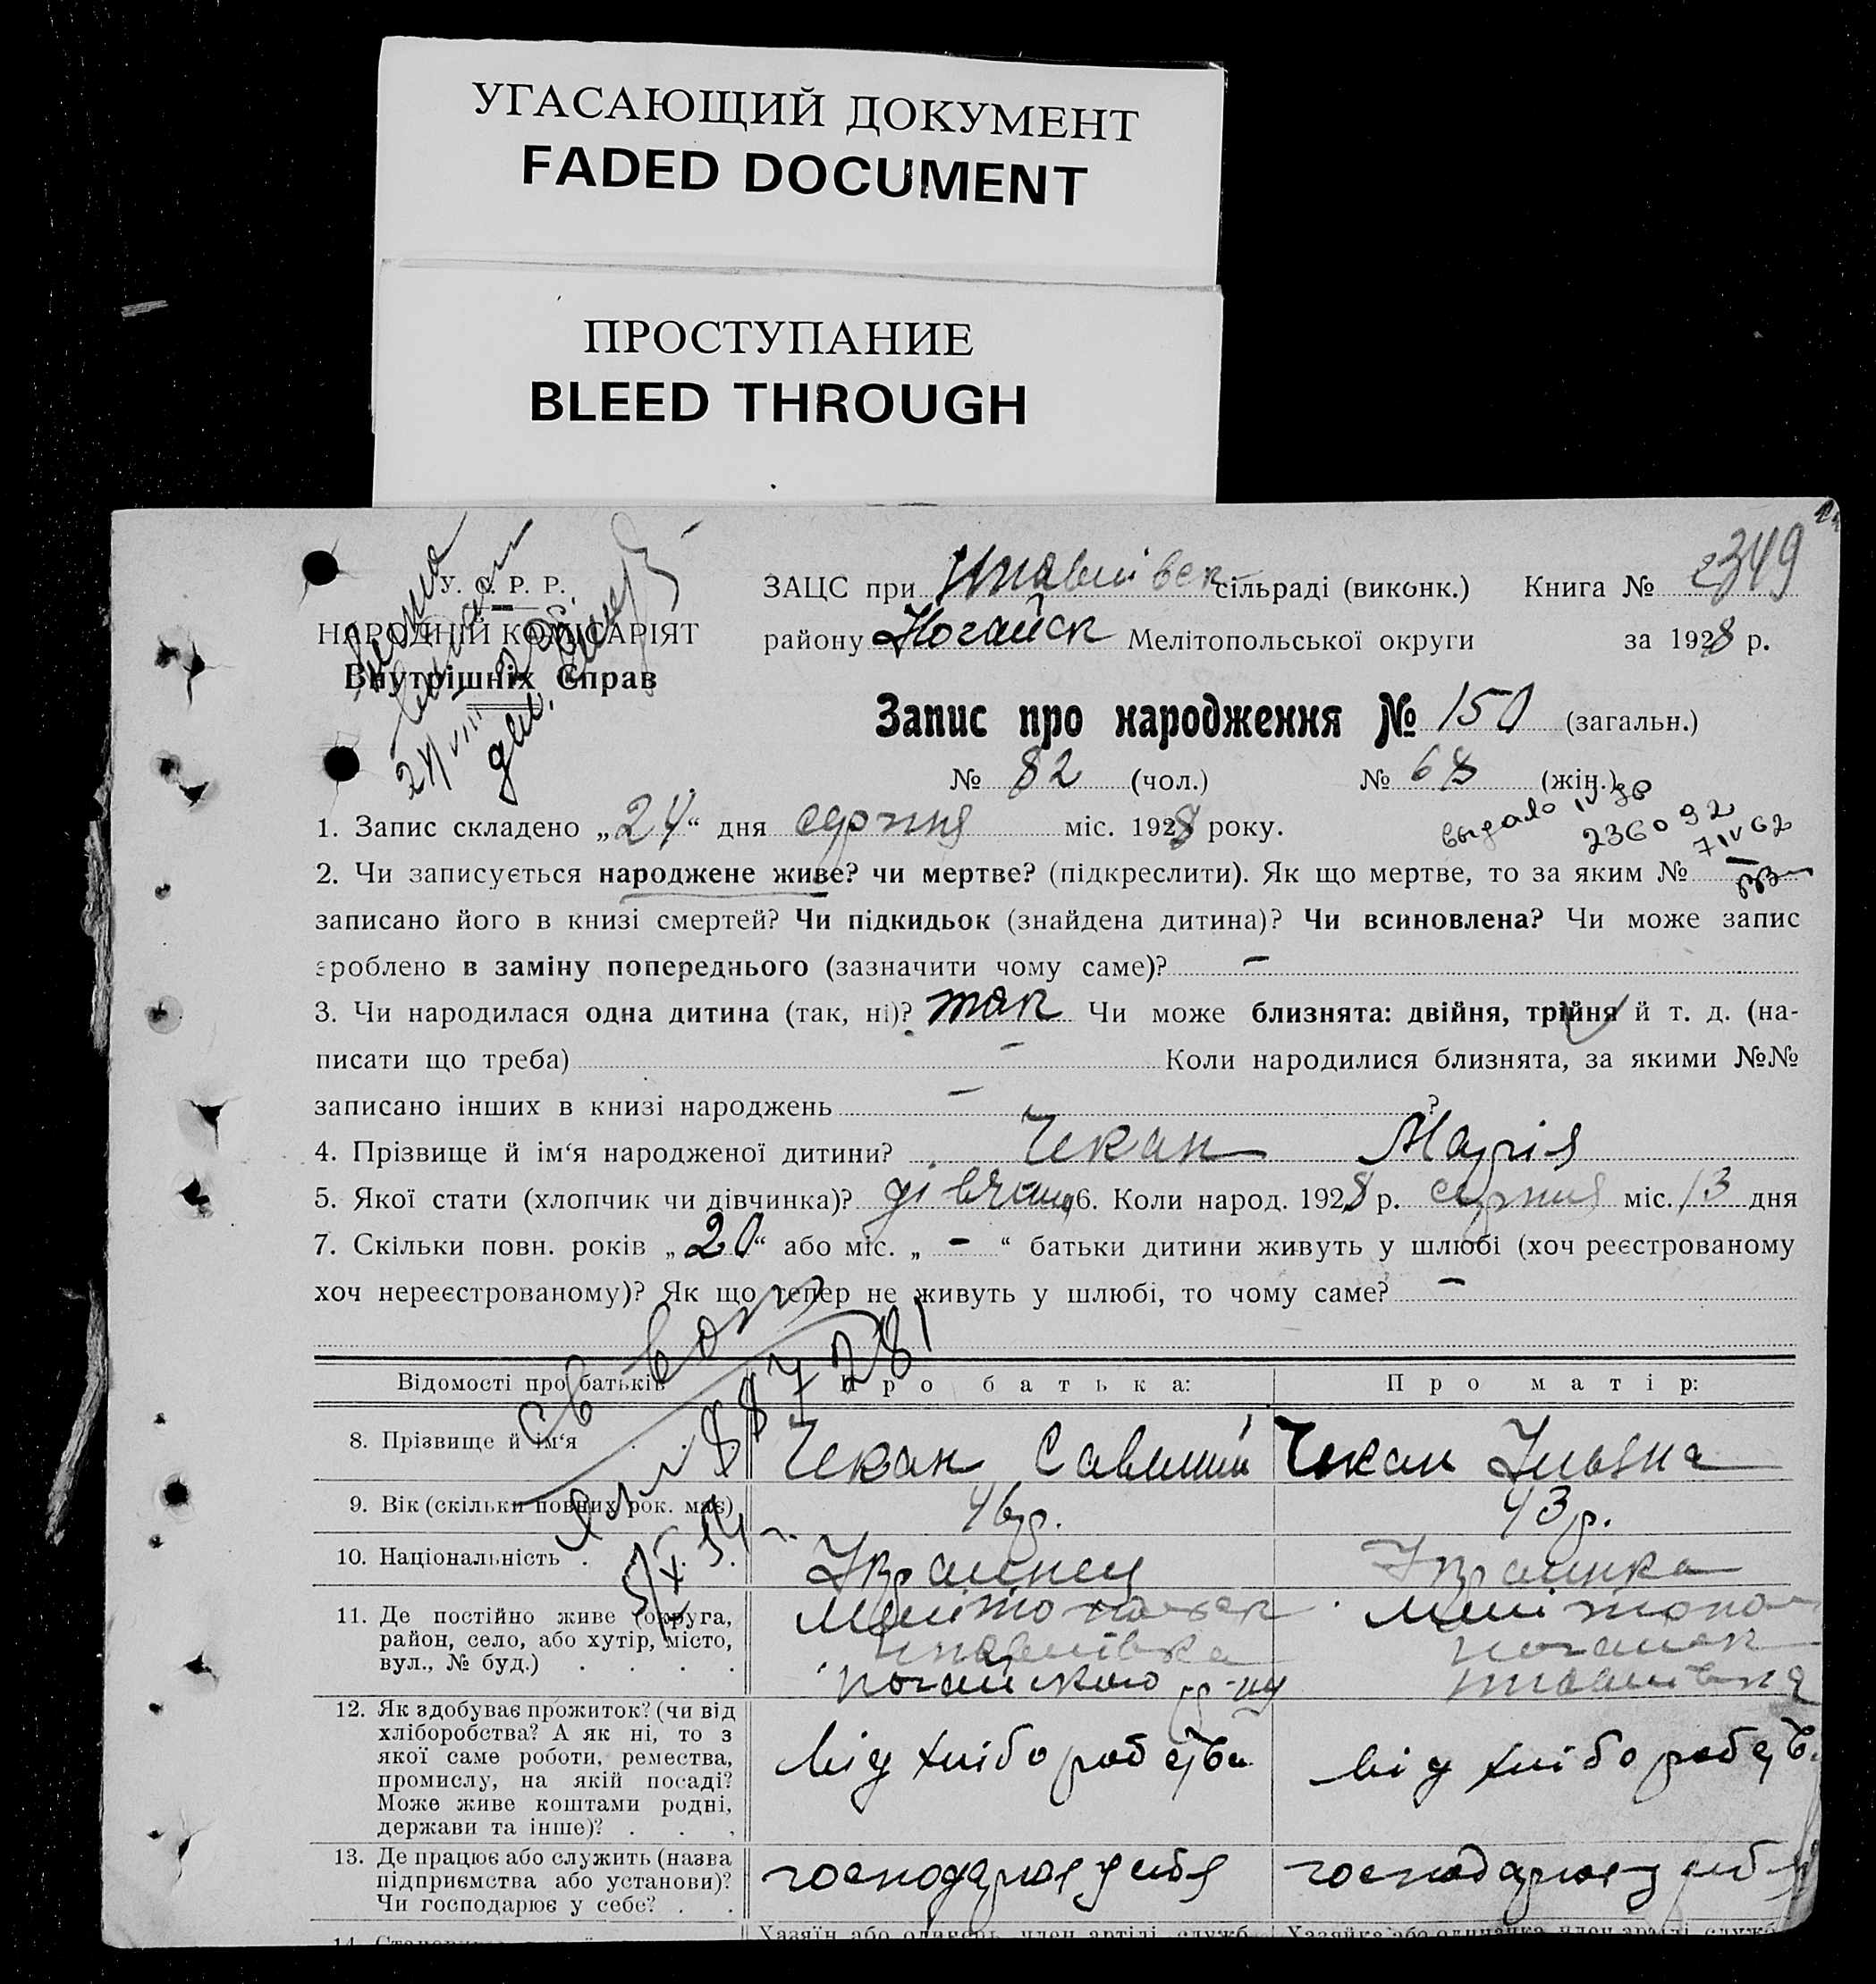 УГАСАЮЩИЙ ДОКУМЕНТ
FADED DOCUMENT
ПРОСТУПАНИЕ
BLEED THROUGH
У. С. Р. Р.
НАРОДНІЙ КОМІСАРІЯТ
Внутрішніх Справ
ЗАЦС при сільраді (виконк.) Книга № 2349
району Ногайск Мелітопольської округи за 1928 р.
Запис про народження № 150 (загальн.)
№ 82 (чол.) № 68 (жін.)
1. Запис складено „24“ дня серпня міс. 1928 року.
236092
7 IV 62
2. Чи записується народжене живе? чи мертве? (підкреслити). Як що мертве, то за яким № —
записано його в книзі смертей? Чи підкидьок (знайдена дитина)? Чи всиновлена? Чи може запис
зроблено в заміну попереднього (зазначити чому саме)? —
3. Чи народилася одна дитина (так, ні)? так Чи може близнята: двійня, трійня й т. д. (на-
писати що треба) — Коли народилися близнята, за якими №№
записано інших в книзі народжень — ?
4. Прізвище й ім‘я народженої дитини? Чекан Марія
5. Якої стати (хлопчик чи дівчинка)? дівчина 6. Коли народ. 1928 р. серпня міс. 13 дня
7. Скільки повн. років „20“ або міс. „ - “ батьки дитини живуть у шлюбі (хоч реєстрованому
хоч нереєстрованому)? Як що тепер не живуть у шлюбі, то чому саме? —
Відомості про батьків Про батька: Про матір:
8. Прізвище й ім‘я Чекан Савелий Чекан Ульяна
9. Вік (скільки повних рок. має) 46 р. 43 р.
10. Національність Украинец Украинка
11. Де постійно живе (округа,
район, село, або хутір, місто,
вул., № буд.)
Мелітопольск
ногайского р-ну
Мелітопол
ногайск
12. Як здобуває прожиток? (чи від
хліборобства? А як ні, то з
якої саме роботи, ремества,
промислу, на якій посаді?
Може живе коштами родні,
держави та інше)?
від хліборобства
від хліборобств
13. Де працює або служить (назва
підприємства або установи)?
Чи господарює у себе?
господарює у себя
господарює у себя
Хазяїн або одинець, член артілі, служб
Хазяйка або одиначка, член артілі, служб